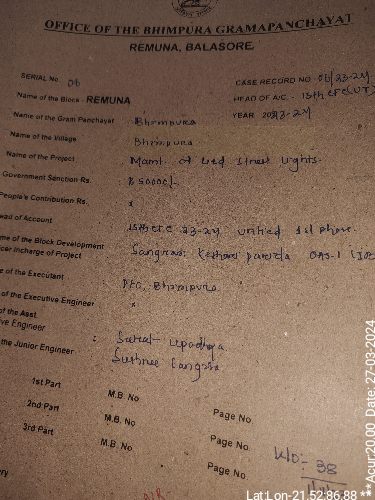 OFFICE OF THE BHIMPURA GRAMAPANCHAYAT
REMUNA, BALASORE.
SERIAL No 06
CASE RECORD NO 06/23-24
HEAD OF A/C. - 15th CFC(UT)
Name of the Block - REMUNA
YEAR 2023-24
Name of the Gram Panchayat Bhimpura
Name of the Village Bhimpura
Name of the Project Maint. of Led Street Lights.
Government Sanction Rs. : 85000/-
People's Contribution Rs. x
ead of Account 15th CFC 23-24 untied 1st phase.
me of the Block Development
cer Incharge of Project Sangram Keshari panda OAS-I (JB)
e of the Executant PEO, Bhimpura
of the Executive Engineer x
of the Asst.
ve Engineer : Sarat Upadhya
the Junior Engineer Sushree Sangita
1st Part M.B. No Page No
2nd Part M.B. No Page No.
3rd Part M.B. No Page No.
W/O- 38
Lat Lon-21.52:86.88 **Acur:20.00 Date, 27-03-2024